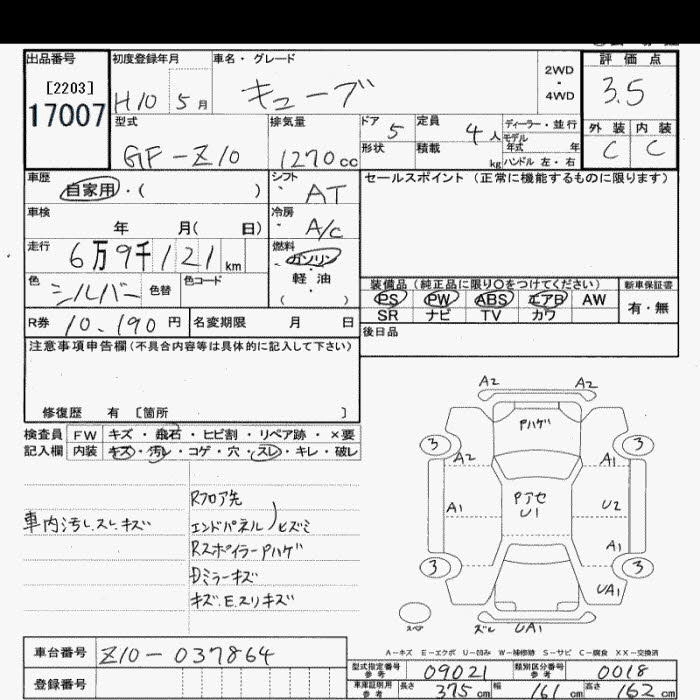 出品番号 初度登録年月 車名・グレード 2WD・4WD 評価点
[2203]
17007 H10 5月 キューブ 3.5
型式 排気量 ドア 5 定員 4人 ディーラー・並行 外装 内装
モデル年式 年
GF-Z10 1270cc 形状 積載 kg ハンドル 左・右 C C
車歴 自家用・( ) シフト AT セールスポイント (正常に機能するものに限ります)
車検 年 月( 日) 冷房 A/C
走行 6万9千121km 燃料 ガソリン
軽油
( )
色 シルバー 色替 色コード 装備品 (純正品に限り○をつけてください) 新車保証書
PS PW ABS エアB AW 有・無
R券 10,190円 名変期限 月 日 SR ナビ TV カワ
後日品
注意事項申告欄(不具合内容等は具体的に記入して下さい)
修復歴 有 [箇所 ]
検査員 FW キズ・飛石・ヒビ割・リペア跡・×要
記入欄 内装 キズ・汚レ・コゲ・穴・スレ・キレ・破レ
Rフロア先
車内汚レ.スレ.キズ エンドパネル)ヒズミ
RスポイラーPハゲ
Dミラーキズ
キズ.E.スリキズ
A2 A2
Pハゲ
3 3
A2 A1
Pアセ
A1 U1 U2
A1
3 3
UA1
スペア ズレ UA1
A-キズ E-エクボ U-凹み W-補修跡 S-サビ C-腐食 XX-交換済
車台番号 Z10-037864
型式指定番号 参考 09021 類別区分番号 参考 0018
登録番号 車庫証明用 参考 長さ 375cm 幅 161cm 高さ 162cm